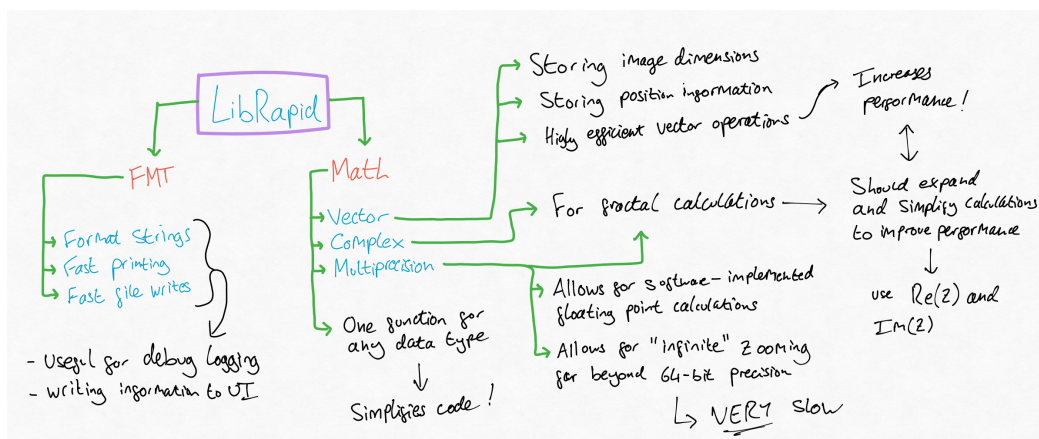 LibRapid
FMT
Format Strings
Fast printing
Fast file writes
- Useful for debug logging
- writing information to UI
Math
Vector
Complex
Multiprecision
One function for
any data type
Simplifies code!
Storing image dimensions
Storing position information
Higly efficient vector operations
Increases
performance!
For fractal calculations
Should expand
and simplify calculations
to improve performance
use Re(Z) and
Im(Z)
Allows for software-implemented
floating point calculations
Allows for "infinite" zooming
far beyond 64-bit precision
VERY slow